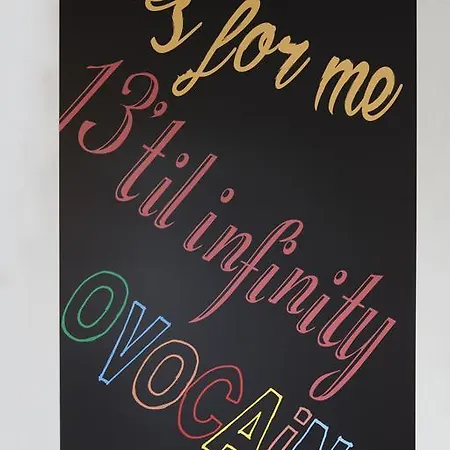 3 for me
13 'til infinity
OVOCAiN